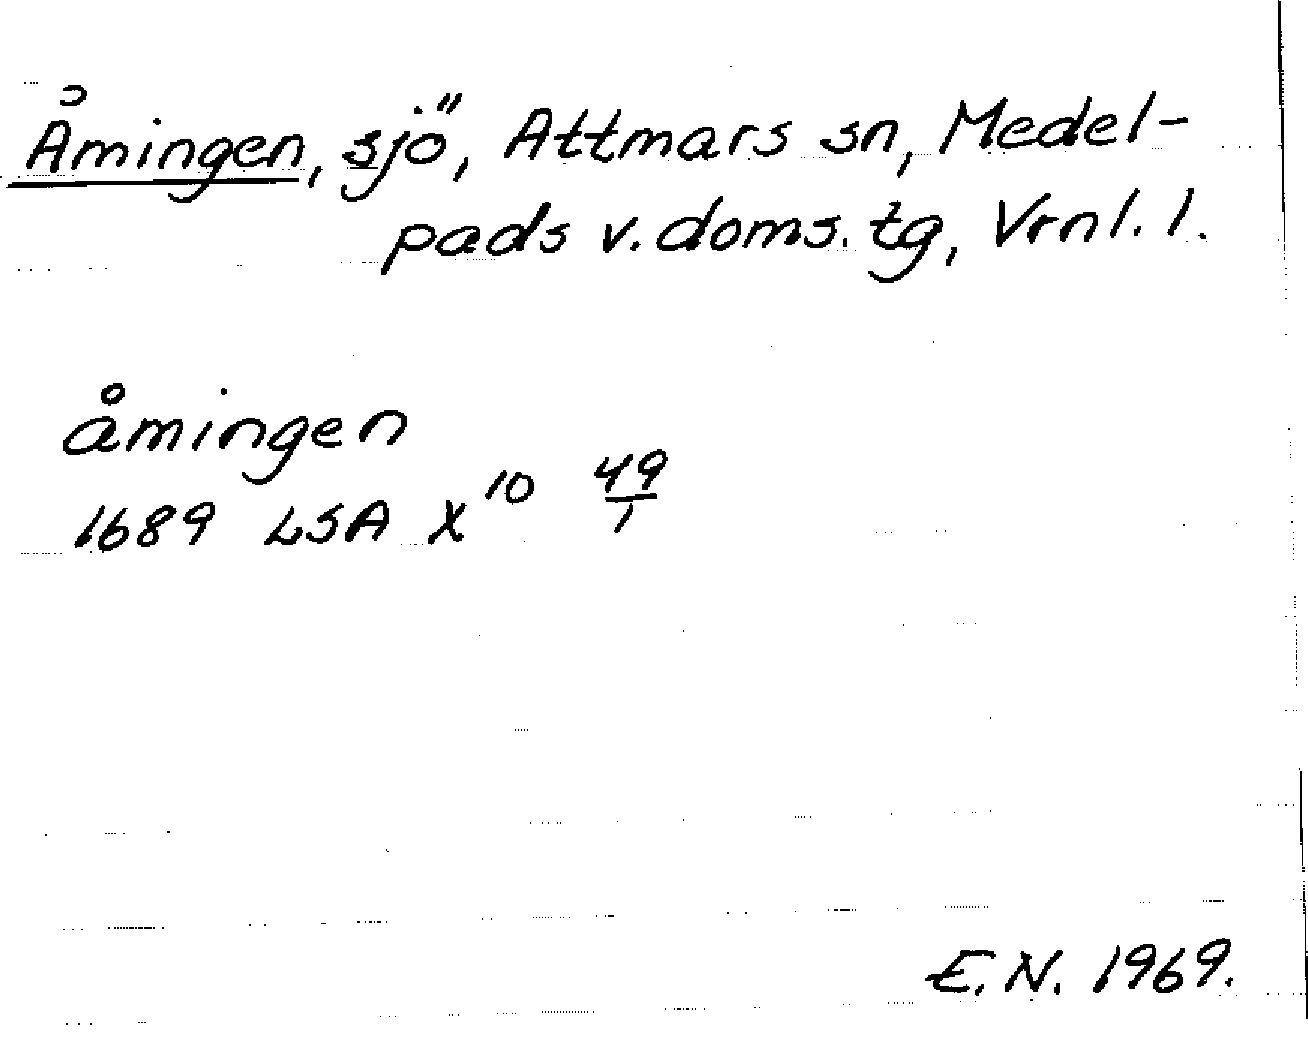 Åmingen, sjö, Attmars sn, Medel-
pads v. doms. tg, Vrnl. l.
åmingen
1689 LSA X¹⁰ 49/1
E.N. 1969.